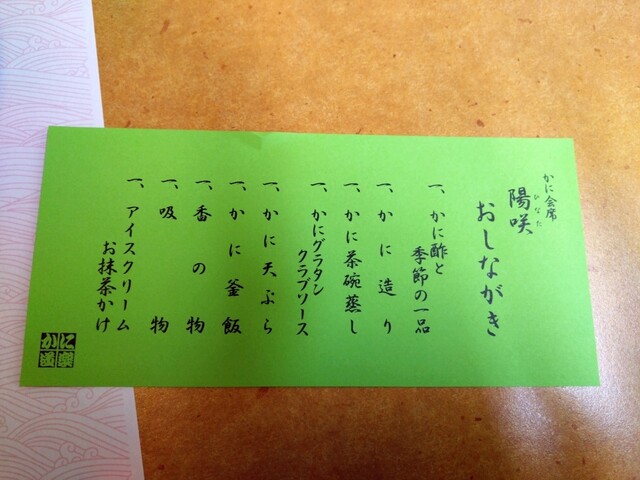 かに会席
陽咲
ひなた
おしながき
一、かに酢と
季節の一品
一、かに造り
一、かに茶碗蒸し
一、かにグラタン
クラブソース
一、かに天ぷら
一、かに釜飯
一、香の物
一、吸物
一、アイスクリーム
お抹茶かけ
かに
道楽